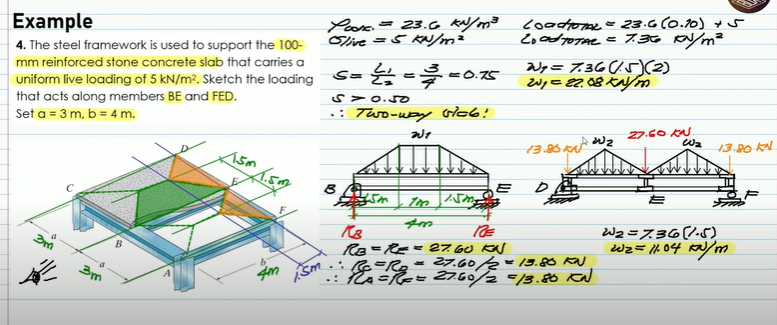 Example
4. The steel framework is used to support the 100-
mm reinforced stone concrete slab that carries a
uniform live loading of 5 kN/m². Sketch the loading
that acts along members BE and FED.
Set a = 3 m, b = 4 m.
γconc. = 23.6 kN/m³
σlive = 5 kN/m²
S = L1/L2 = 3/4 = 0.75
S > 0.50
∴ Two-way slab!
Load TOTAL = 23.6(0.10) + 5
Load TOTAL = 7.36 kN/m²
w1 = 7.36(1.5)(2)
w1 = 22.08 kN/m
D
1.5m
1.5m
E
C
F
3m
a
B
3m
a
A
b
4m
1.5m
w1
B
E
1.5m
1m
1.5m
4m
RB
RE
RB = RE = 27.60 kN
∴ RC = RD = 27.60/2 = 13.80 kN
∴ RA = RF = 27.60/2 = 13.80 kN
13.80 kN
w2
27.60 kN
w2
13.80 kN
D
E
F
w2 = 7.36(1.5)
w2 = 11.04 kN/m